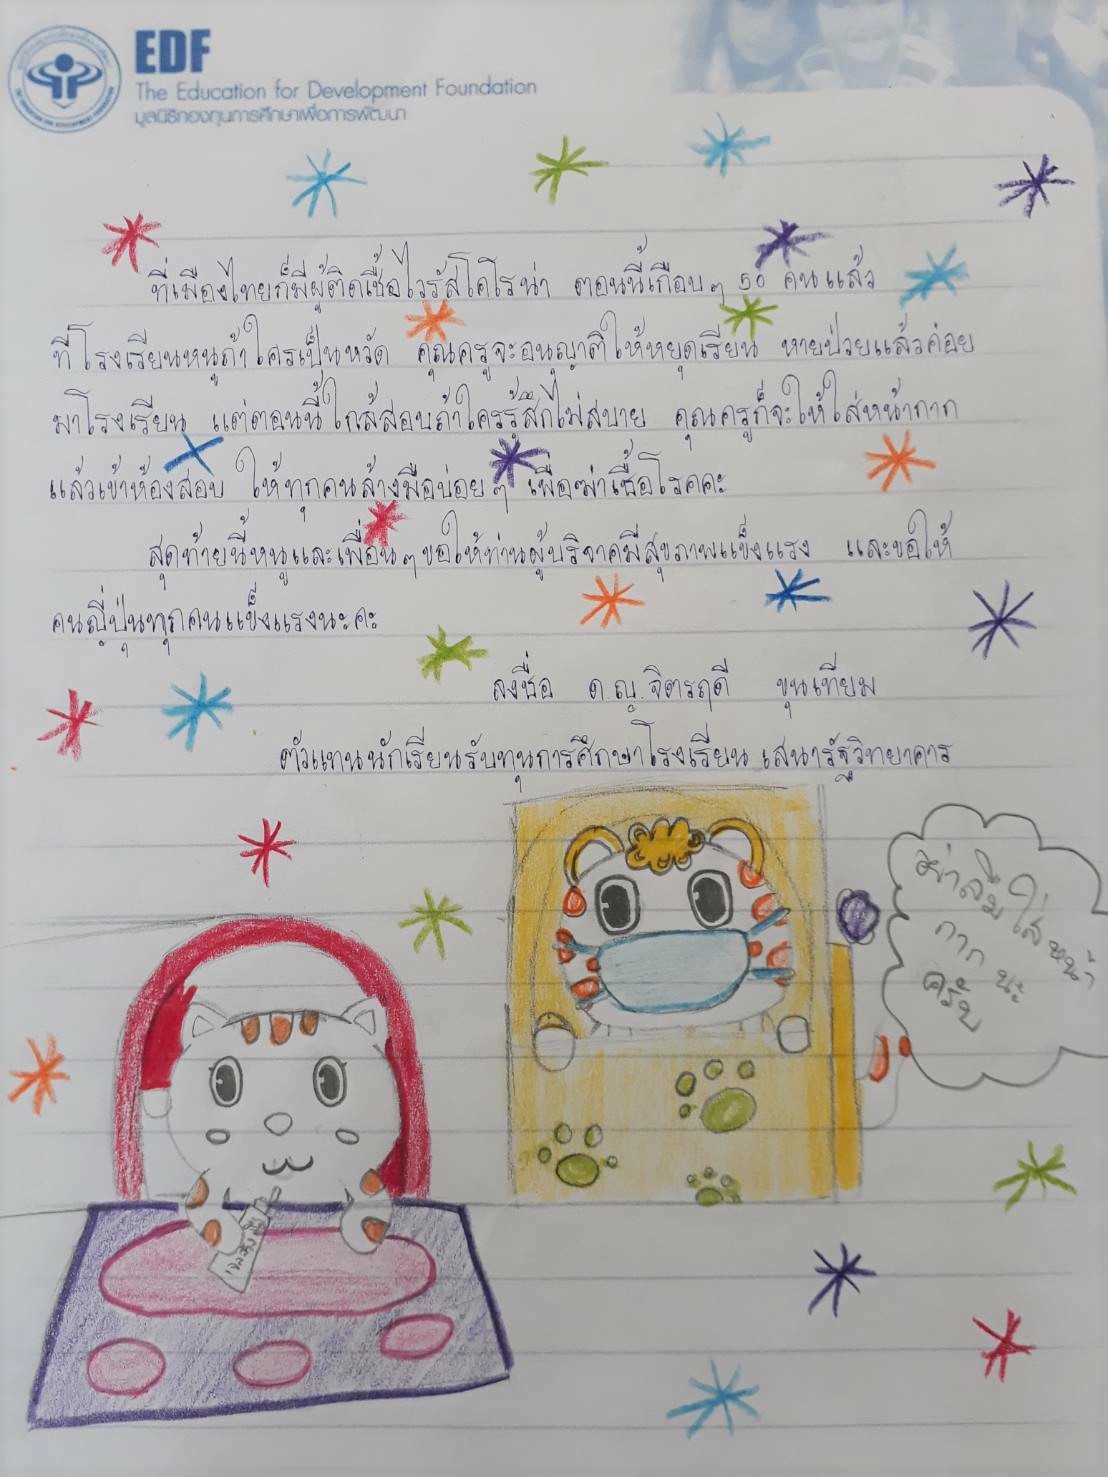 EDF
The Education for Development Foundation
มูลนิธิกองทุนการศึกษาเพื่อการพัฒนา
ที่เมืองไทยก็มีผู้ติดเชื้อไวรัสโคโรน่า ตอนนี้เกือบๆ 50 คนแล้ว
ที่โรงเรียนหนูถ้าใครเป็นหวัด คุณครูจะอนุญาติให้หยุดเรียน หายป่วยแล้วค่อย
มาโรงเรียน แต่ตอนนี้ใกล้สอบถ้าใครรู้สึกไม่สบาย คุณครูก็จะให้ใส่หน้ากาก
แล้วเข้าห้องสอบ ให้ทุกคนล้างมือบ่อยๆ เพื่อฆ่าเชื้อโรคคะ
สุดท้ายนี้หนูและเพื่อนๆขอให้ท่านผู้บริจาคมีสุขภาพแข็งแรง และขอให้
คนญี่ปุ่นทุกคนแข็งแรงนะคะ
ลงชื่อ ด.ญ.จิตรฤดี ขุนเทียม
ตัวแทนนักเรียนรับทุนการศึกษาโรงเรียน เสนารัฐวิทยาคาร
อย่าลืมใส่หน้า
กาก นะ
ครับ